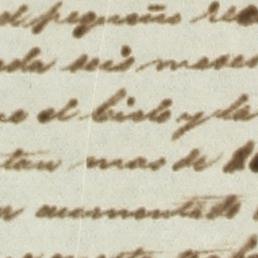 el pequeño re
ada seis meses
ue el cielo y la
tan mas de
aumentado